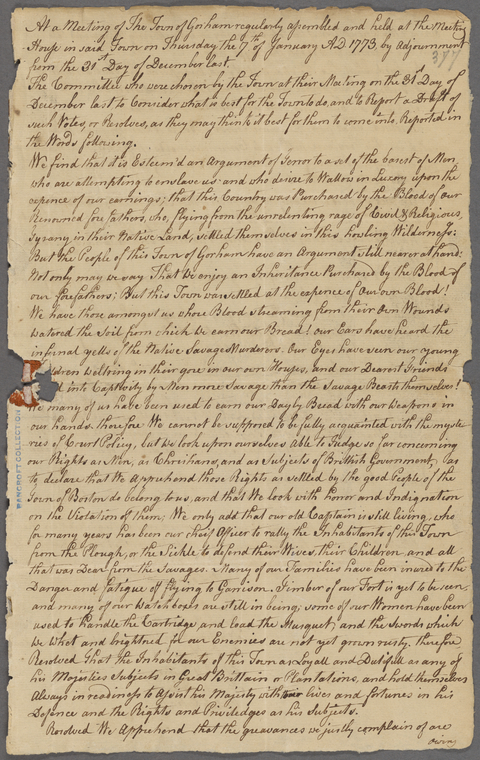 At a Meeting of The Town of Gorham regularly assembled and held at the Meeting
House in said Town on Thursday the 7th of January AD 1773, by Adjournment
from the 31st Day of December last.
The Committee who were chosen by the Town at their Meeting on the 31st Day of
December last to Consider what is best for the Town to do, and to Report a Draft of
such Votes, or Resolves, as they may think it best for them to come into, Reported in
the Words following.
We find that it is Esteem'd an Argument of Terror to a set of the basest of Men,
who are attempting to enslave us and who desire to Wallow in Luxory upon the
expence of our earnings; that this Country was Purchased by the Blood of our
Renowned forefathers, who, flying from the unrelenting rage of Civil & Religious,
Tyrany in their Native Land, settled themselves in this howling Wilderness:
But the People of this Town of Gorham have an Argument still nearer at hand:
Not only may we say That we enjoy an Inheritance Purchased by the Blood of
our forefathers; But this Town was settled at the expence of our own Blood!
We have those amongst us whose Blood streaming from their own Wounds
watered the Soil from which we earn our Bread! our Ears have heard the
infernal yells of the Native Savage Murderers. Our Eyes have seen our young
Children weltring in their gore in our own Houses, and our Dearest friends
into Captivity by Men more Savage than the Savage Beasts themselves!
We many of us have been used to earn our Dayly Bread with our weapons in
our hands. therefore We cannot be supposed to be fully acquainted with the myste-
ries of Court Policy, but we look upon ourselves able to Judge so far concerning
our Rights as Men, as Christians, and as Subjects of Brittish Government, as
to declare that We Apprehend those Rights as settled by the good People of the
Town of Boston do belong to us, and that We look with horror and Indignation
on the Violation of them; We only add that our old Captain is still living, who
for many years has been our chief Officer to rally the Inhabitants of this Town
from the Plough, or the Sickle to defend their Wives, their Children, and all
that was Dear from the Savages. Many of our Families have been inured to the
Danger and fatigue of flying to Garrison. Timber of our Fort is yet to be seen,
and many of our Watch boxes are still in being; some of our Women have been
used to handle the Cartridge and load the Musquet, and the Swords which
we Whet and brightned for our Enemies are not yet grown rusty, therefore
Resolved that the Inhabitants of this Town as Loyall and Dutifull as any of
his Majesties Subjects in Great Brittain or Plantations, and hold themselves
Always in readiness to Assist his Majesty with their lives and fortunes in his
Defence and the Rights and Priviledges as his Subjects.
Resolved We Apprehend that the greavances we justly complain of are
owing
BANCROFT COLLECTION